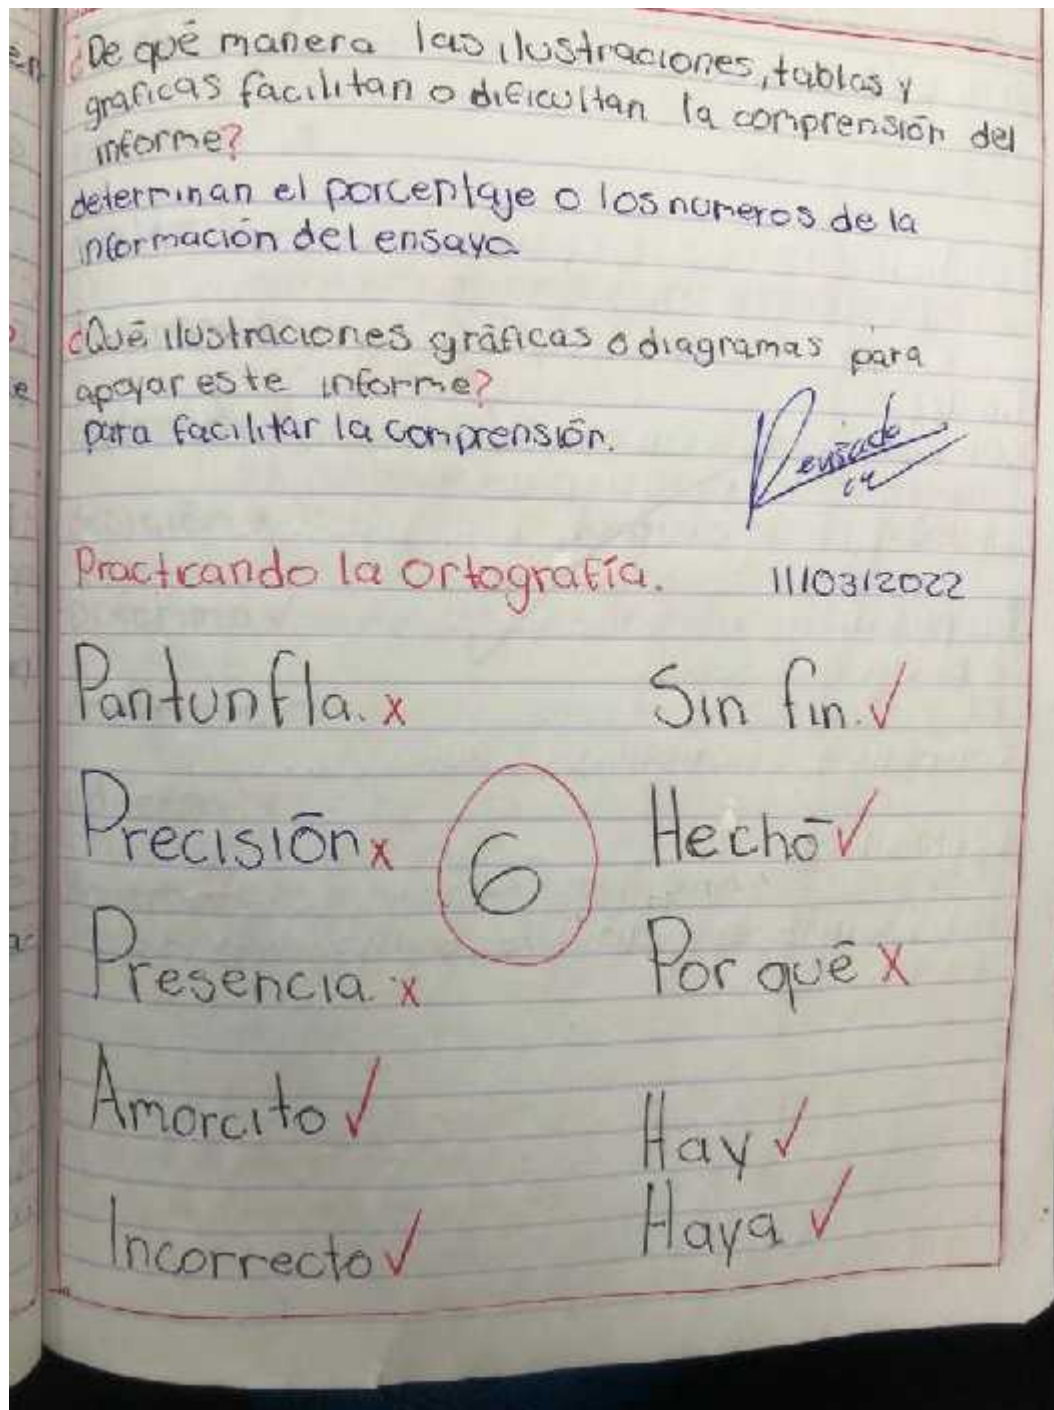 ¿De qué manera las ilustraciones, tablas y
graficas facilitan o dificultan la comprensión del
informe?
determinan el porcentaje o los numeros de la
información del ensayo
¿Qué ilustraciones gráficas o diagramas para
apoyar este informe?
para facilitar la comprensión.
Revisado
Practicando la ortografía. 11/03/2022
Pantunfla. x Sin fin. ✓
Precisión x 6 Hechó ✓
Presencia. x Por qué x
Amorcito ✓ Hay ✓
Incorrecto ✓ Haya ✓